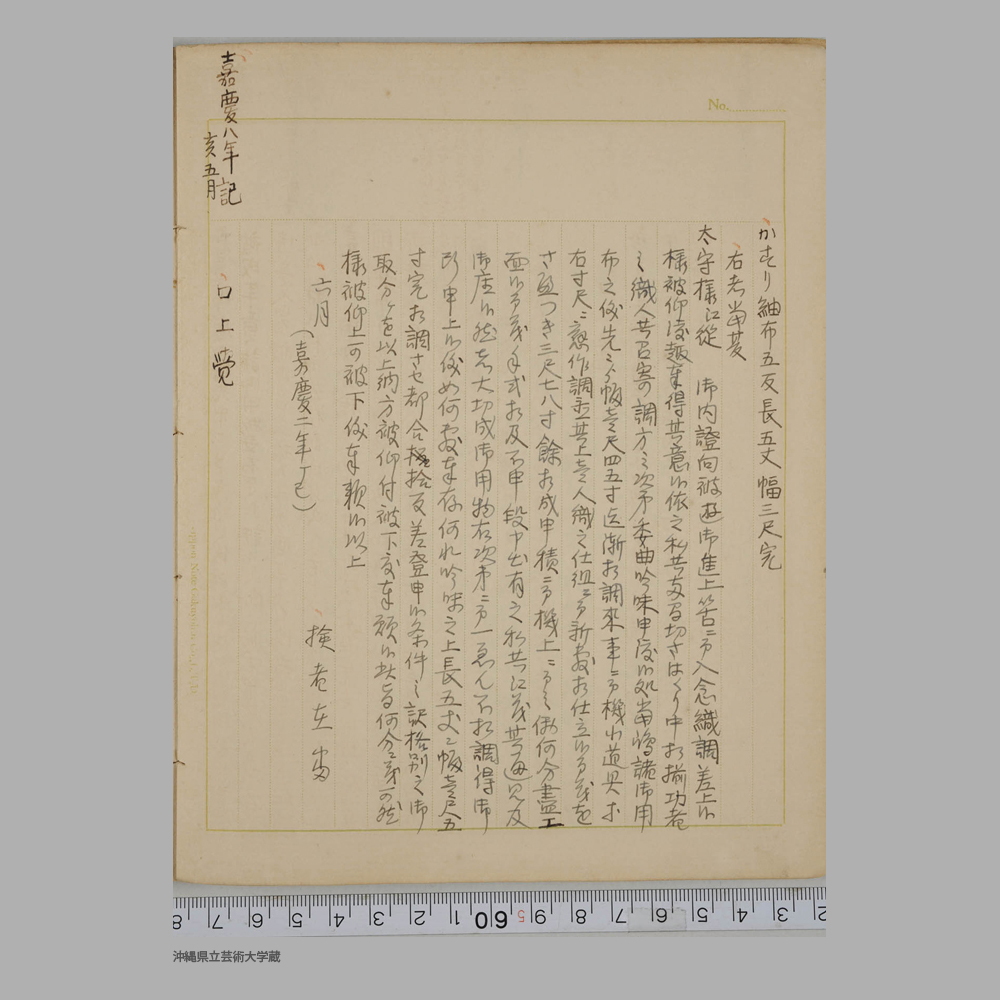 No.
かすり紬布五反長五丈幅三尺完
右者当夏
太守様江従 御内證向被遊御進上筈ニ而入念織調差上候
様被仰渡趣奉得其意候依之私共友る切さはくり中相揃功者
之織人共召寄調方之次第委曲吟味申渡候処当嶋諸御用
布之儀先々幅壱尺四五寸迄漸相調来事ニ而機小道具等
右寸尺ニ應作調置其上壱人織之仕組ニ而新敷相仕立候而茂を
さ廻つき三尺七八寸餘相成申積ニ而機上ニ而之働何分盡工
面候而茂手弐相及不申段申出有之私共江茂其通見及
御座候然者大切成御用物右次第ニ而一急ん不相調得御
断申上候儀如何敷奉存何れ吟味之上長五丈ニ幅壱尺五
寸完相調させ都合拾反差登申候条件之訳格別之御
取分ヶを以上納方被仰付被下度奉願候此旨何分ニ茂可然
様被仰上可被下儀奉頼候以上
六月
(嘉慶二年丁巳)
検者在番
口上覚
嘉慶八年記
亥五月
沖縄県立芸術大学蔵